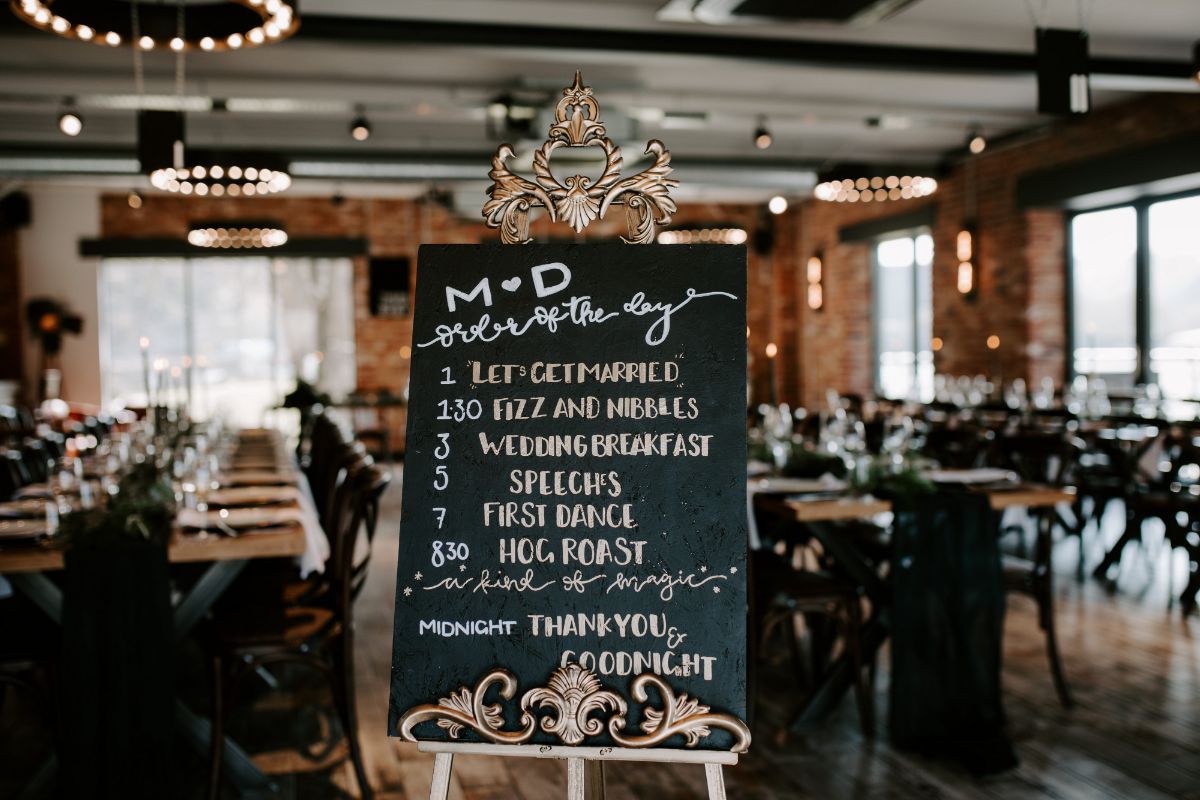 M ♥ D
order of the day
1 "LET'S GET MARRIED"
1:30 FIZZ AND NIBBLES
3 WEDDING BREAKFAST
5 SPEECH'S
7 FIRST DANCE
830 HOG ROAST
a kind of magic
MIDNIGHT THANKYOU &
GOODNIGHT